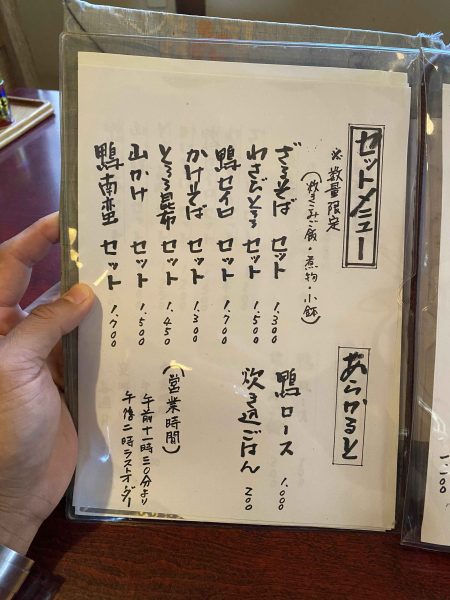 セットメニュー
※数量限定
(炊きこみご飯・煮物・小鉢)
ざるそば セット 1,300
わさびとろろ セット 1,500
鴨セイロ セット 1,700
かけそば セット 1,300
とろろ昆布 セット 1,450
山かけ セット 1,500
鴨南蛮 セット 1,700
あらかると
鴨ロース 1,000
炊き込ごはん 200
(営業時間)
午前十一時三〇分より
午後二時ラストオーダー
1,100